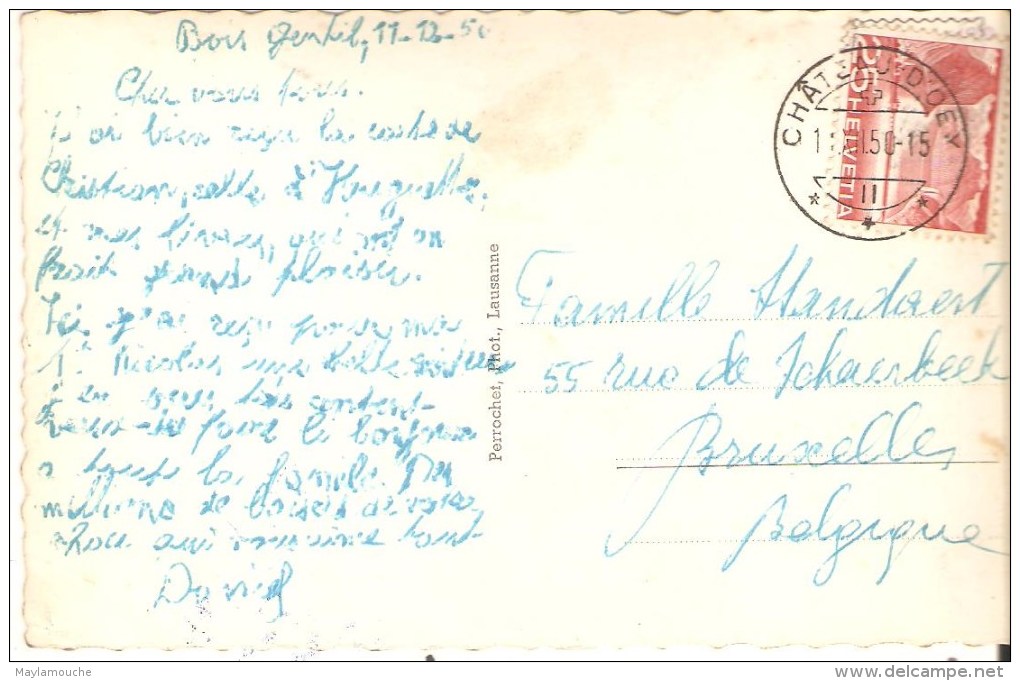 Bois Gentil, 11-12-50
Cher vous tous.
J'ai bien reçu la carte de
Christian, celle d'Huguette,
et mes livres, qui ont
fait grand plaisir.
Ici j'ai reçu pour ma
St Nicolas une belle
je en suis très content
de faire le bonjour
a toute la famile. Des
millions de baisers de votre
chou qui vous aime tout
David
Perrochet, Phot., Lausanne
CHÂTEAU-D'OEX
11.XII.50-15
II
HELVETIA
Famille Handaert
55 rue de Schaerbeek
Bruxelles
Belgique
Maylamouche
delcampe.net